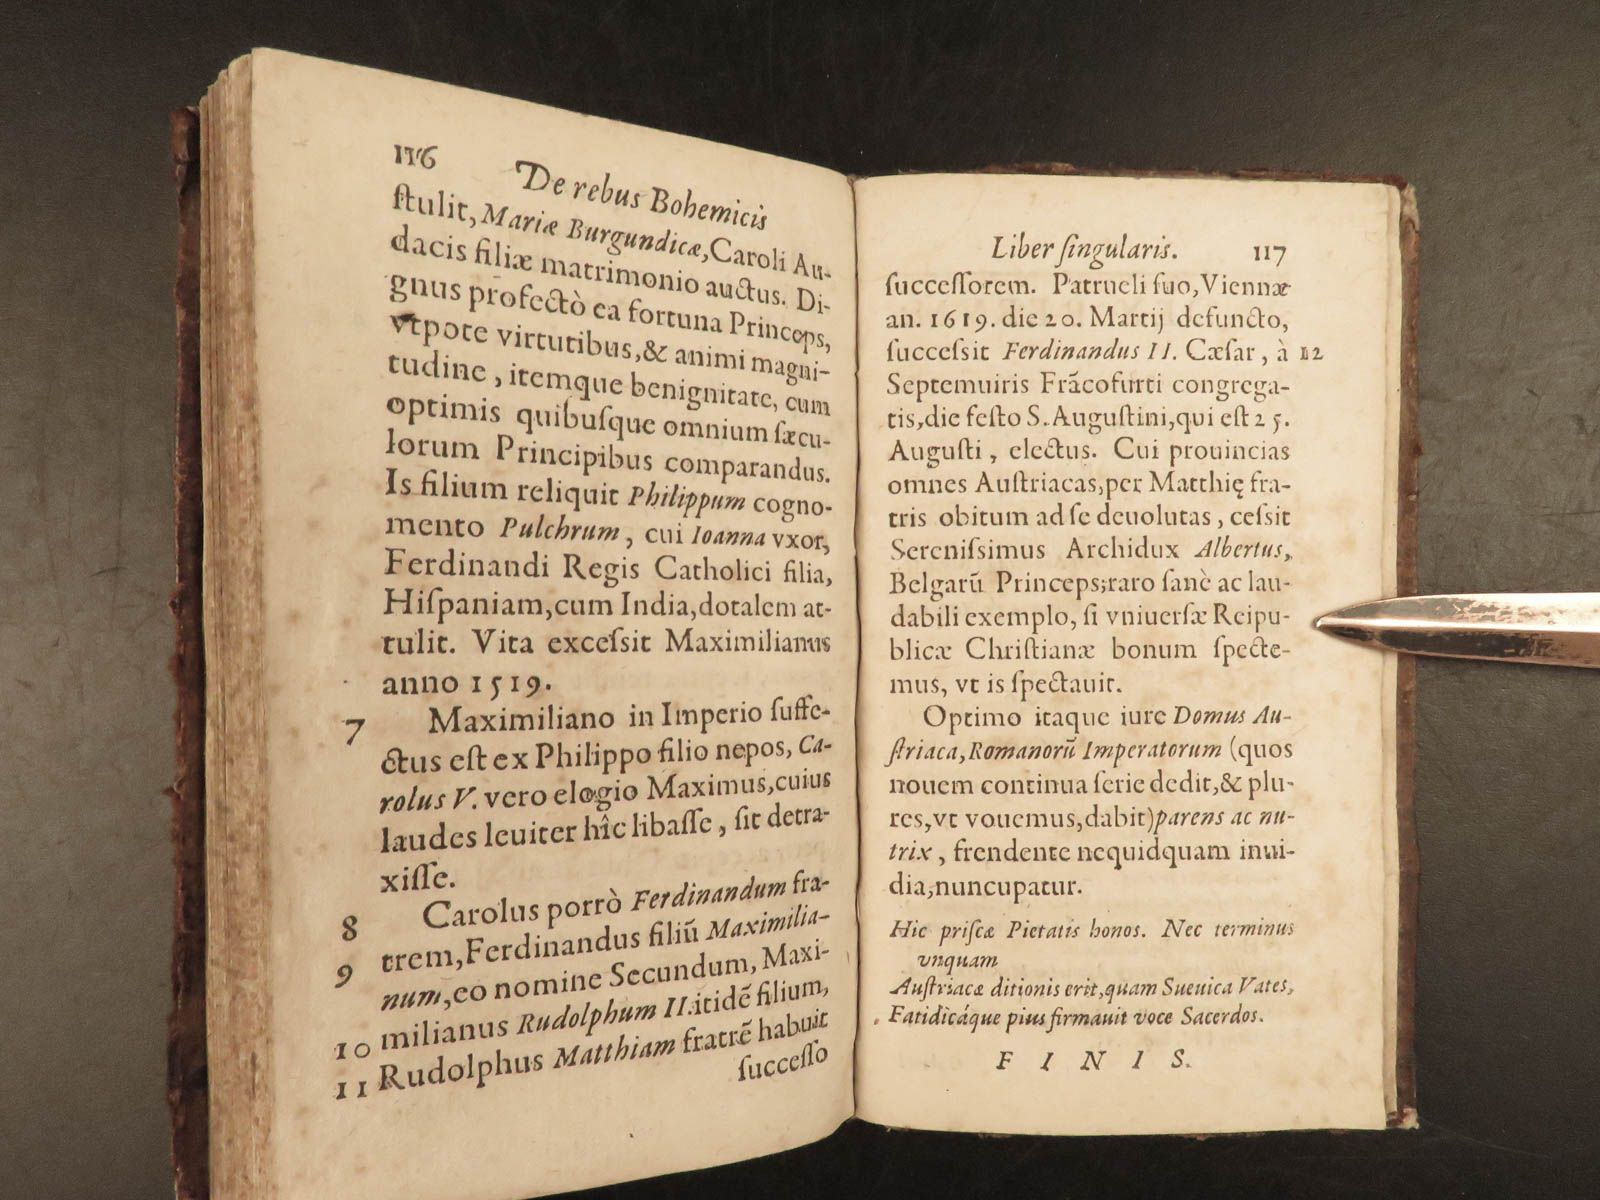 116
De rebus Bohemicis
ſtulit, Mariæ Burgundicæ, Caroli Au-
dacis filiæ matrimonio auctus. Di-
gnus profectò ea fortuna Princeps,
vtpote virtutibus, & animi magni-
tudine, itemque benignitate, cum
optimis quibuſque omnium ſæcu-
lorum Principibus comparandus.
Is filium reliquit Philippum cogno-
mento Pulchrum, cui Ioanna vxor,
Ferdinandi Regis Catholici filia,
Hiſpaniam, cum India, dotalem at-
tulit. Vita exceſsit Maximilianus
anno 1519.
7 Maximiliano in Imperio ſuffe-
ctus eſt ex Philippo filio nepos, Ca-
rolus V. vero elogio Maximus, cuius
laudes leuiter hîc libaſſe, ſit detra-
xiſſe.
8 Carolus porrò Ferdinandum fra-
9 trem, Ferdinandus filiũ Maximilia-
num, eo nomine Secundum, Maxi-
10 milianus Rudolphum II. itidẽ filium,
11 Rudolphus Matthiam fratrẽ habuit
ſucceſſo
Liber ſingularis. 117
ſucceſſorem. Patrueli ſuo, Viennæ
an. 1619. die 20. Martij defuncto,
ſucceſsit Ferdinandus II. Cæſar, à 12
Septemuiris Frãcofurti congrega-
tis, die feſto S. Auguſtini, qui eſt 25.
Auguſti, electus. Cui prouincias
omnes Auſtriacas, per Matthię fra-
tris obitum ad ſe deuolutas, ceſsit
Sereniſsimus Archidux Albertus,
Belgarũ Princeps; raro ſanè ac lau-
dabili exemplo, ſi vniuerſæ Reipu-
blicæ Chriſtianæ bonum ſpecte-
mus, vt is ſpectauit.
Optimo itaque iure Domus Au-
ſtriaca, Romanorũ Imperatorum (quos
nouem continua ſerie dedit, & plu-
res, vt vouemus, dabit) parens ac nu-
trix, frendente nequidquam inui-
dia, nuncupatur.
Hic priſcæ Pietatis honos. Nec terminus
vnquam
Auſtriacæ ditionis erit, quam Sueuica Vates,
Fatidicáque pius firmauit voce Sacerdos.
F I N I S.